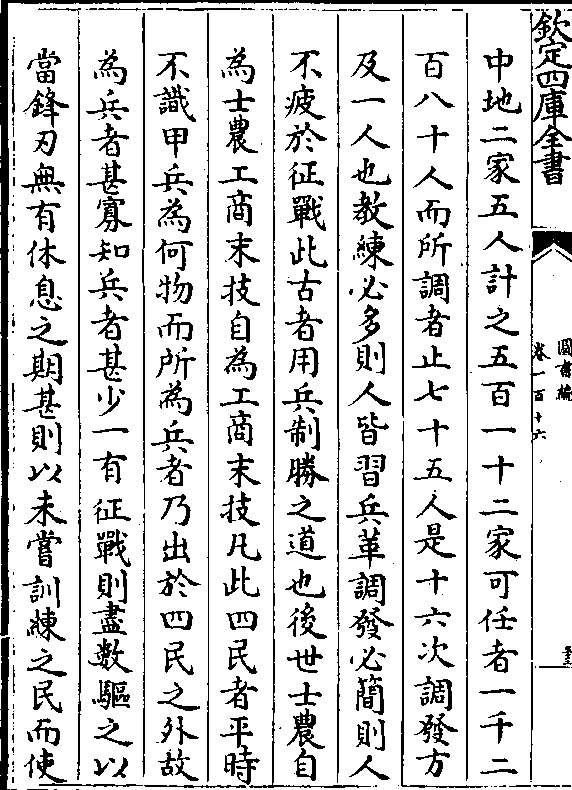 欽定四庫全書
圖書編
卷一百十六
中地二家五人計之五百一十二家可任者一千二
百八十人而所調者止七十五人是十六次調發方
及一人也教練必多則人皆習兵革調發必簡則人
不疲於征戰此古者用兵制勝之道也後世士農自
為士農工商末技自為工商末技凡此四民者平時
不識甲兵為何物而所為兵者乃出於四民之外故
為兵者甚寡知兵者甚少一有征戰則盡數驅之以
當鋒刃無有休息之期甚則以未嘗訓練之民而使